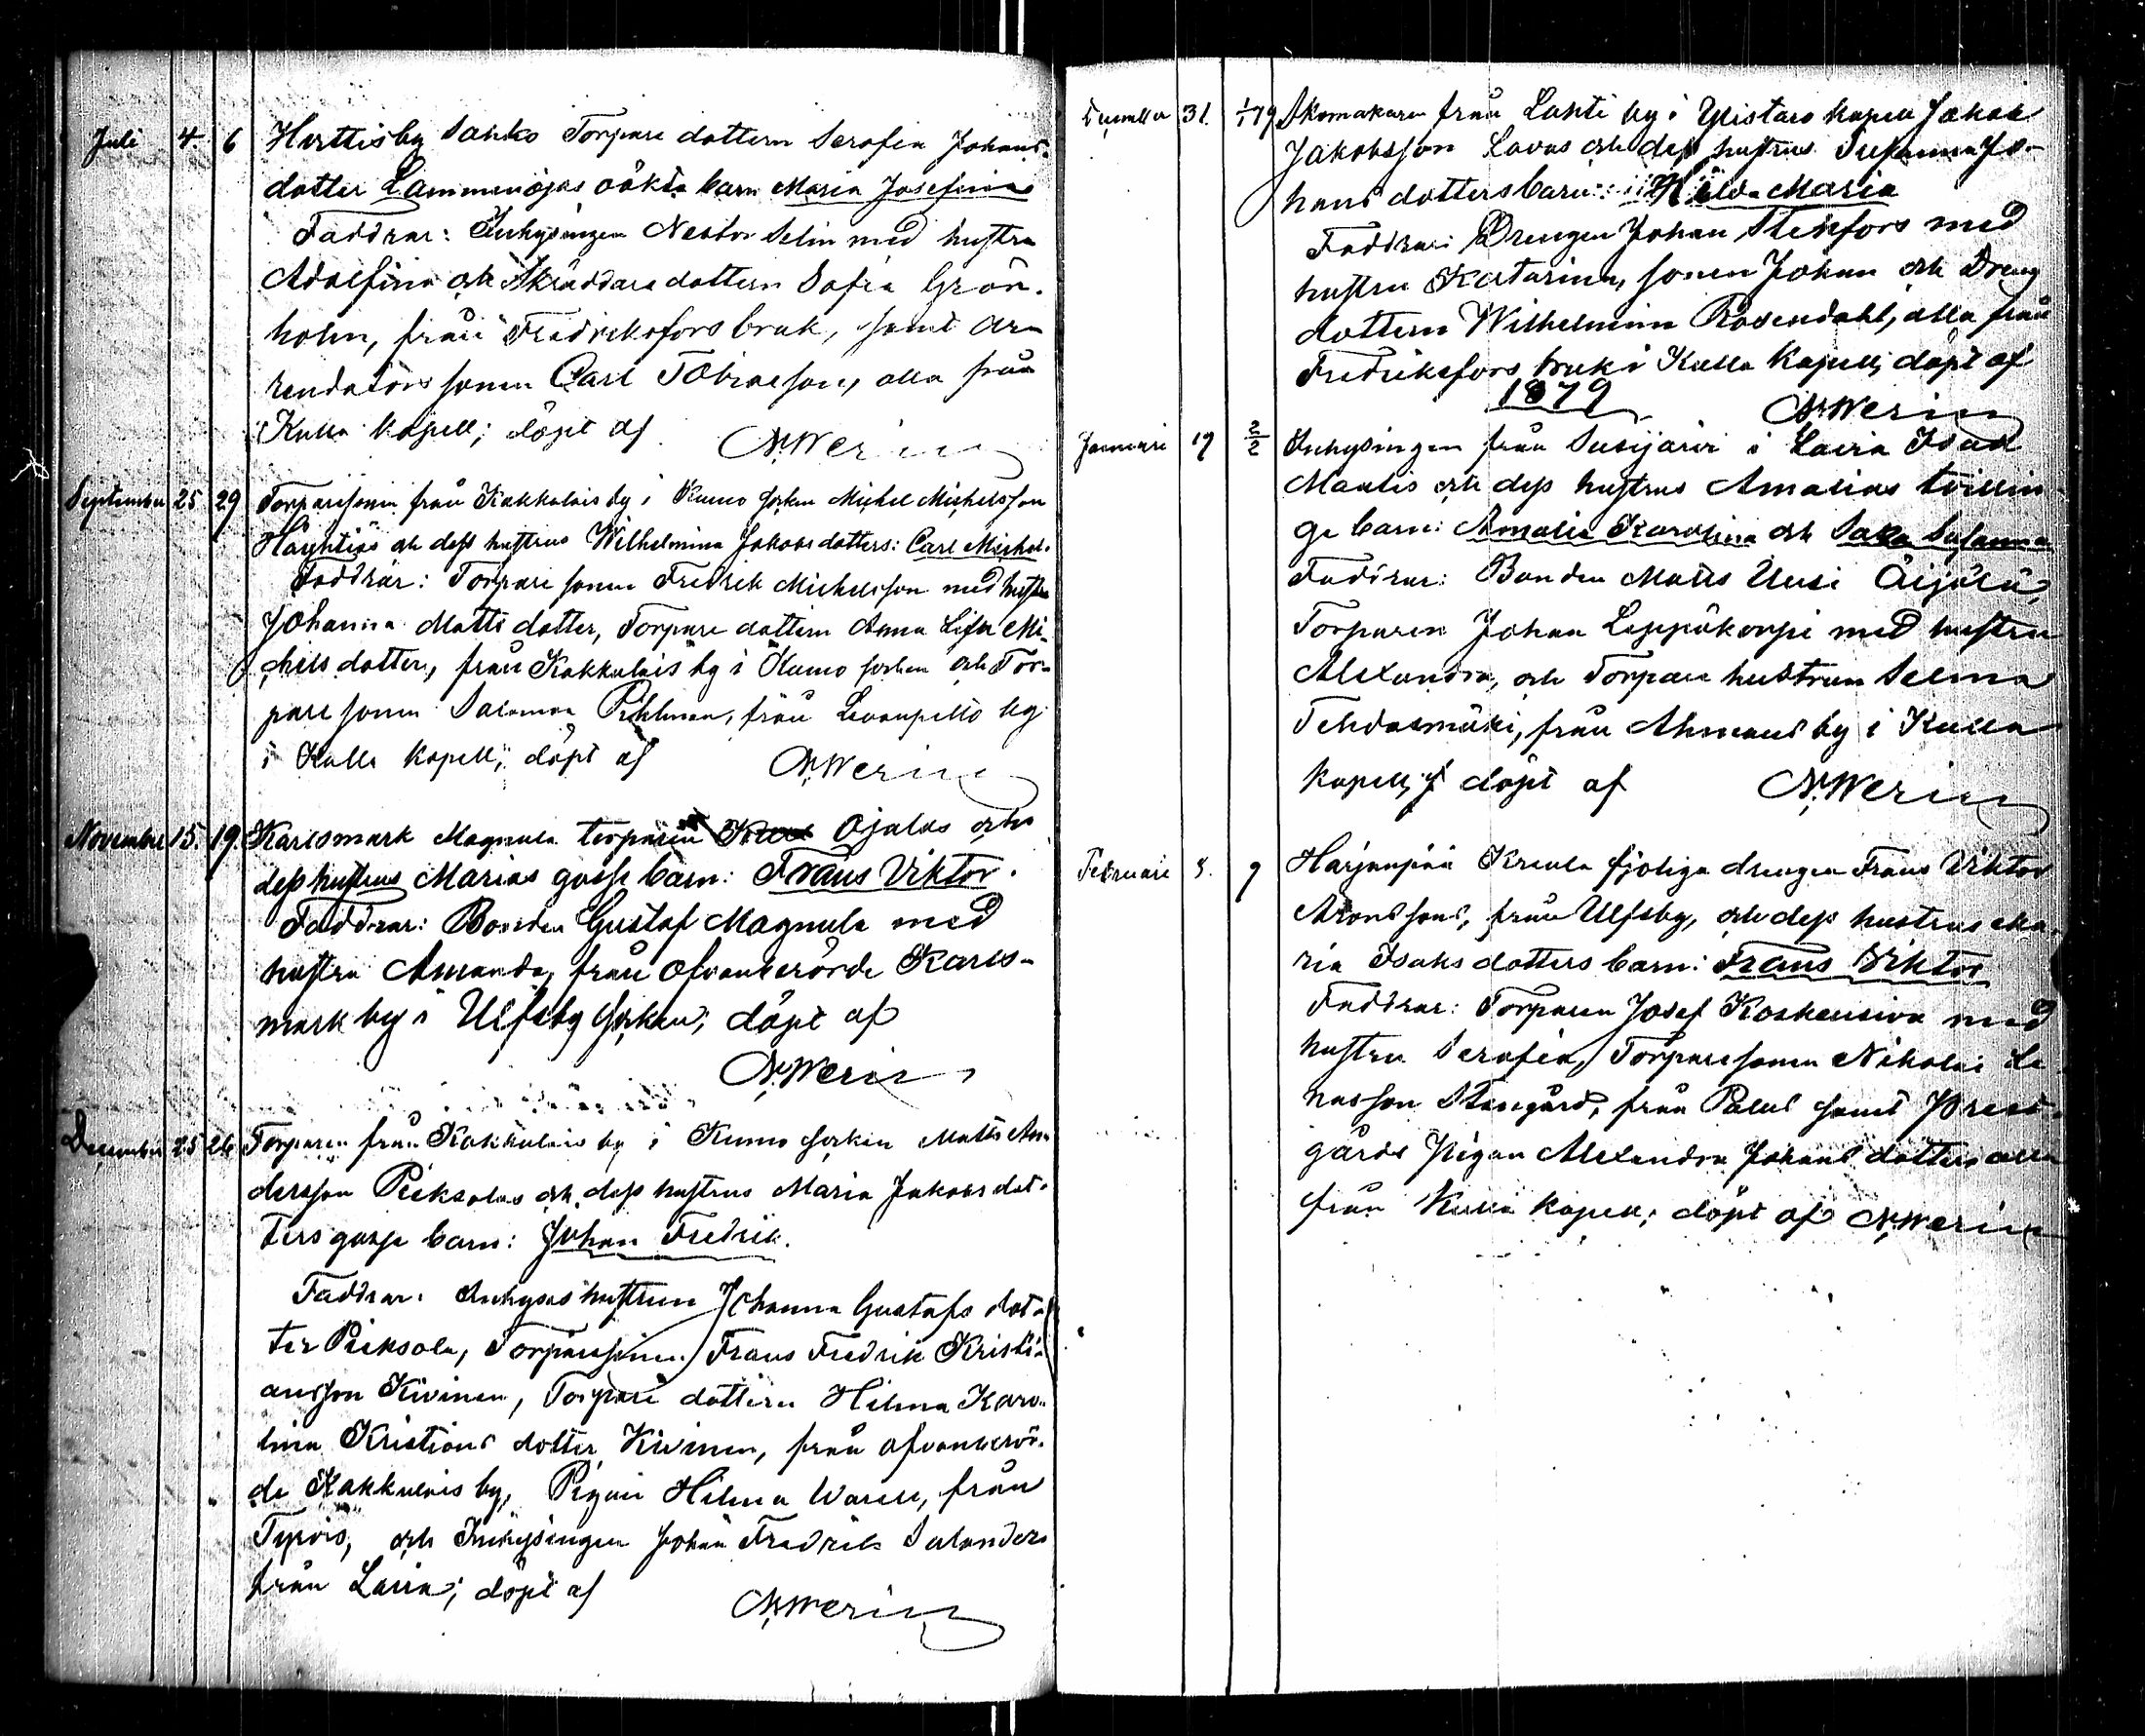 Juli 4. 6 Herttisby Sahko Torpare dottern Serafia Johans-
dotter Lammenojas oäkta barn Maria Josefina
Faddrar: Inhysingen Nestor Selin med hustru
Adolfina och Skräddare dottern Sofia Grön-
holm, från Fredriksfors bruk, samt Ar-
rendators sonen Carl Tobiaeson, alla från
Kulla kapell; döpt af N. Werin
September 25 29 Torparesonen från Kakkulais by i Kumo socken Michel Michelsson
Häyhtiös och dess hustrus Wilhelmina Jakobsdotters: Carl Michel.
Faddrar: Torpare sonen Fredrik Michelsson med hustru
Johanna Matts dotter, Torpare dottern Anna Lisa Mi-
chels dotter, från Kakkulais by i Kumo socken och Tor-
pare sonen Salomon Pihlman, från Levanpelto by
i Kulla kapell; döpt af N. Werin
November 15. 19. Karlsmark Magnula torparen Ojalas och
dess hustrus Marias gosse barn: Frans Viktor.
Faddrar: Bonden Gustaf Magnula med
hustru Amanda, från ofvanberörde Karls-
mark by i Ulfsby socken; döpt af
N. Werin
December 25 26 Torparen från Kakkulais by i Kumo socken Matts An-
dersson Pieksolas och dess hustrus Maria Jakobs dot-
ters gosse barn: Johan Fredrik.
Faddrar: Inhyses hustrun Johanna Gustafs dot-
ter Pieksola, Torparesonen Frans Fredrik Kristi-
ansson Kivinen, Torpare dottern Hilma Karo-
lina Kristians dotter Kivinen, från ofvanberör-
de Kakkulais by, Pigan Hilma Warell, från
Tyrvis, och Inhysingen Johan Fredrik Salanders
från Lavia; döpt af N. Werin
December 31. 1/1 79 Skomakaren från Lahti by i Ylistaro kapell Jakob
Jakobsson Lavas och dess hustrus Susanna Jo-
hans dotters barn: Hilda Maria
Faddrar: Drengen Johan Stenfors med
hustru Katarina, sonen Johan och Dreng
dottern Wilhelmina Rosendahl, alla från
Fredriksfors bruk i Kulla kapell; döpt af
1879 N. Werin
Januari 19 2/2 Inhysingen från Susijärvi i Lavia Isak
Mantis och dess hustrus Amalias tvillin-
ge barn: Amalia Karolina och Saka Susanna
Faddrar: Bonden Matts Uusi Äijälä,
Torparen Johan Leppäkorpi med hustru
Alexandra, och Torpare hustrun Selma
Tehdasmäki, från Ahmaus by i Kulla
kapell; döpt af N. Werin
Februari 8. 9 Harjunpää Kreula fjoliga drengen Frans Viktor
Aronssons, från Ulfsby, och dess hustrus Ma-
ria Isaks dotters barn: Frans Viktor
Faddrar: Torparen Josef Koskensiva med
hustru Serafia, Torparesonen Nikolai
nasson Stengård, från Palus samt Prest-
gårds Pigan Alexandra Johans dotter alla
från Kulla kapell; döpt af N. Werin